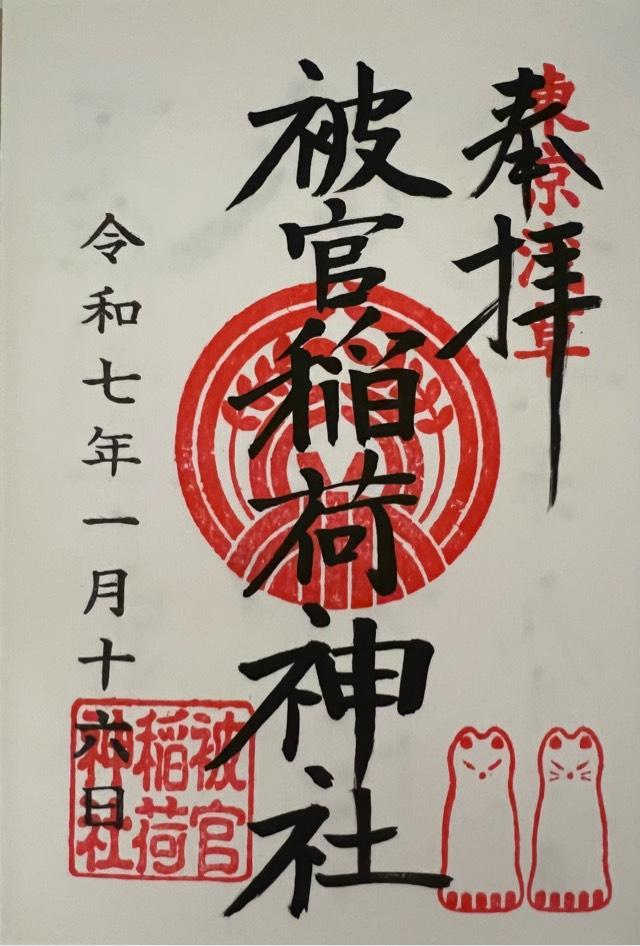 東京浅草
奉拝
被官稲荷神社
令和七年一月十六日
被官
稲荷
神社